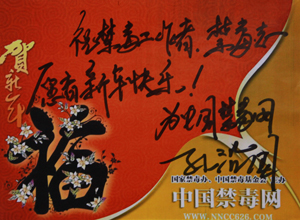 祝禁毒工作者、禁毒志
愿者新年快乐!
为中国禁毒网
賀
年
福
国家禁毒办、中国禁毒基金会
中国禁毒网
WWW.NNCC626.COM